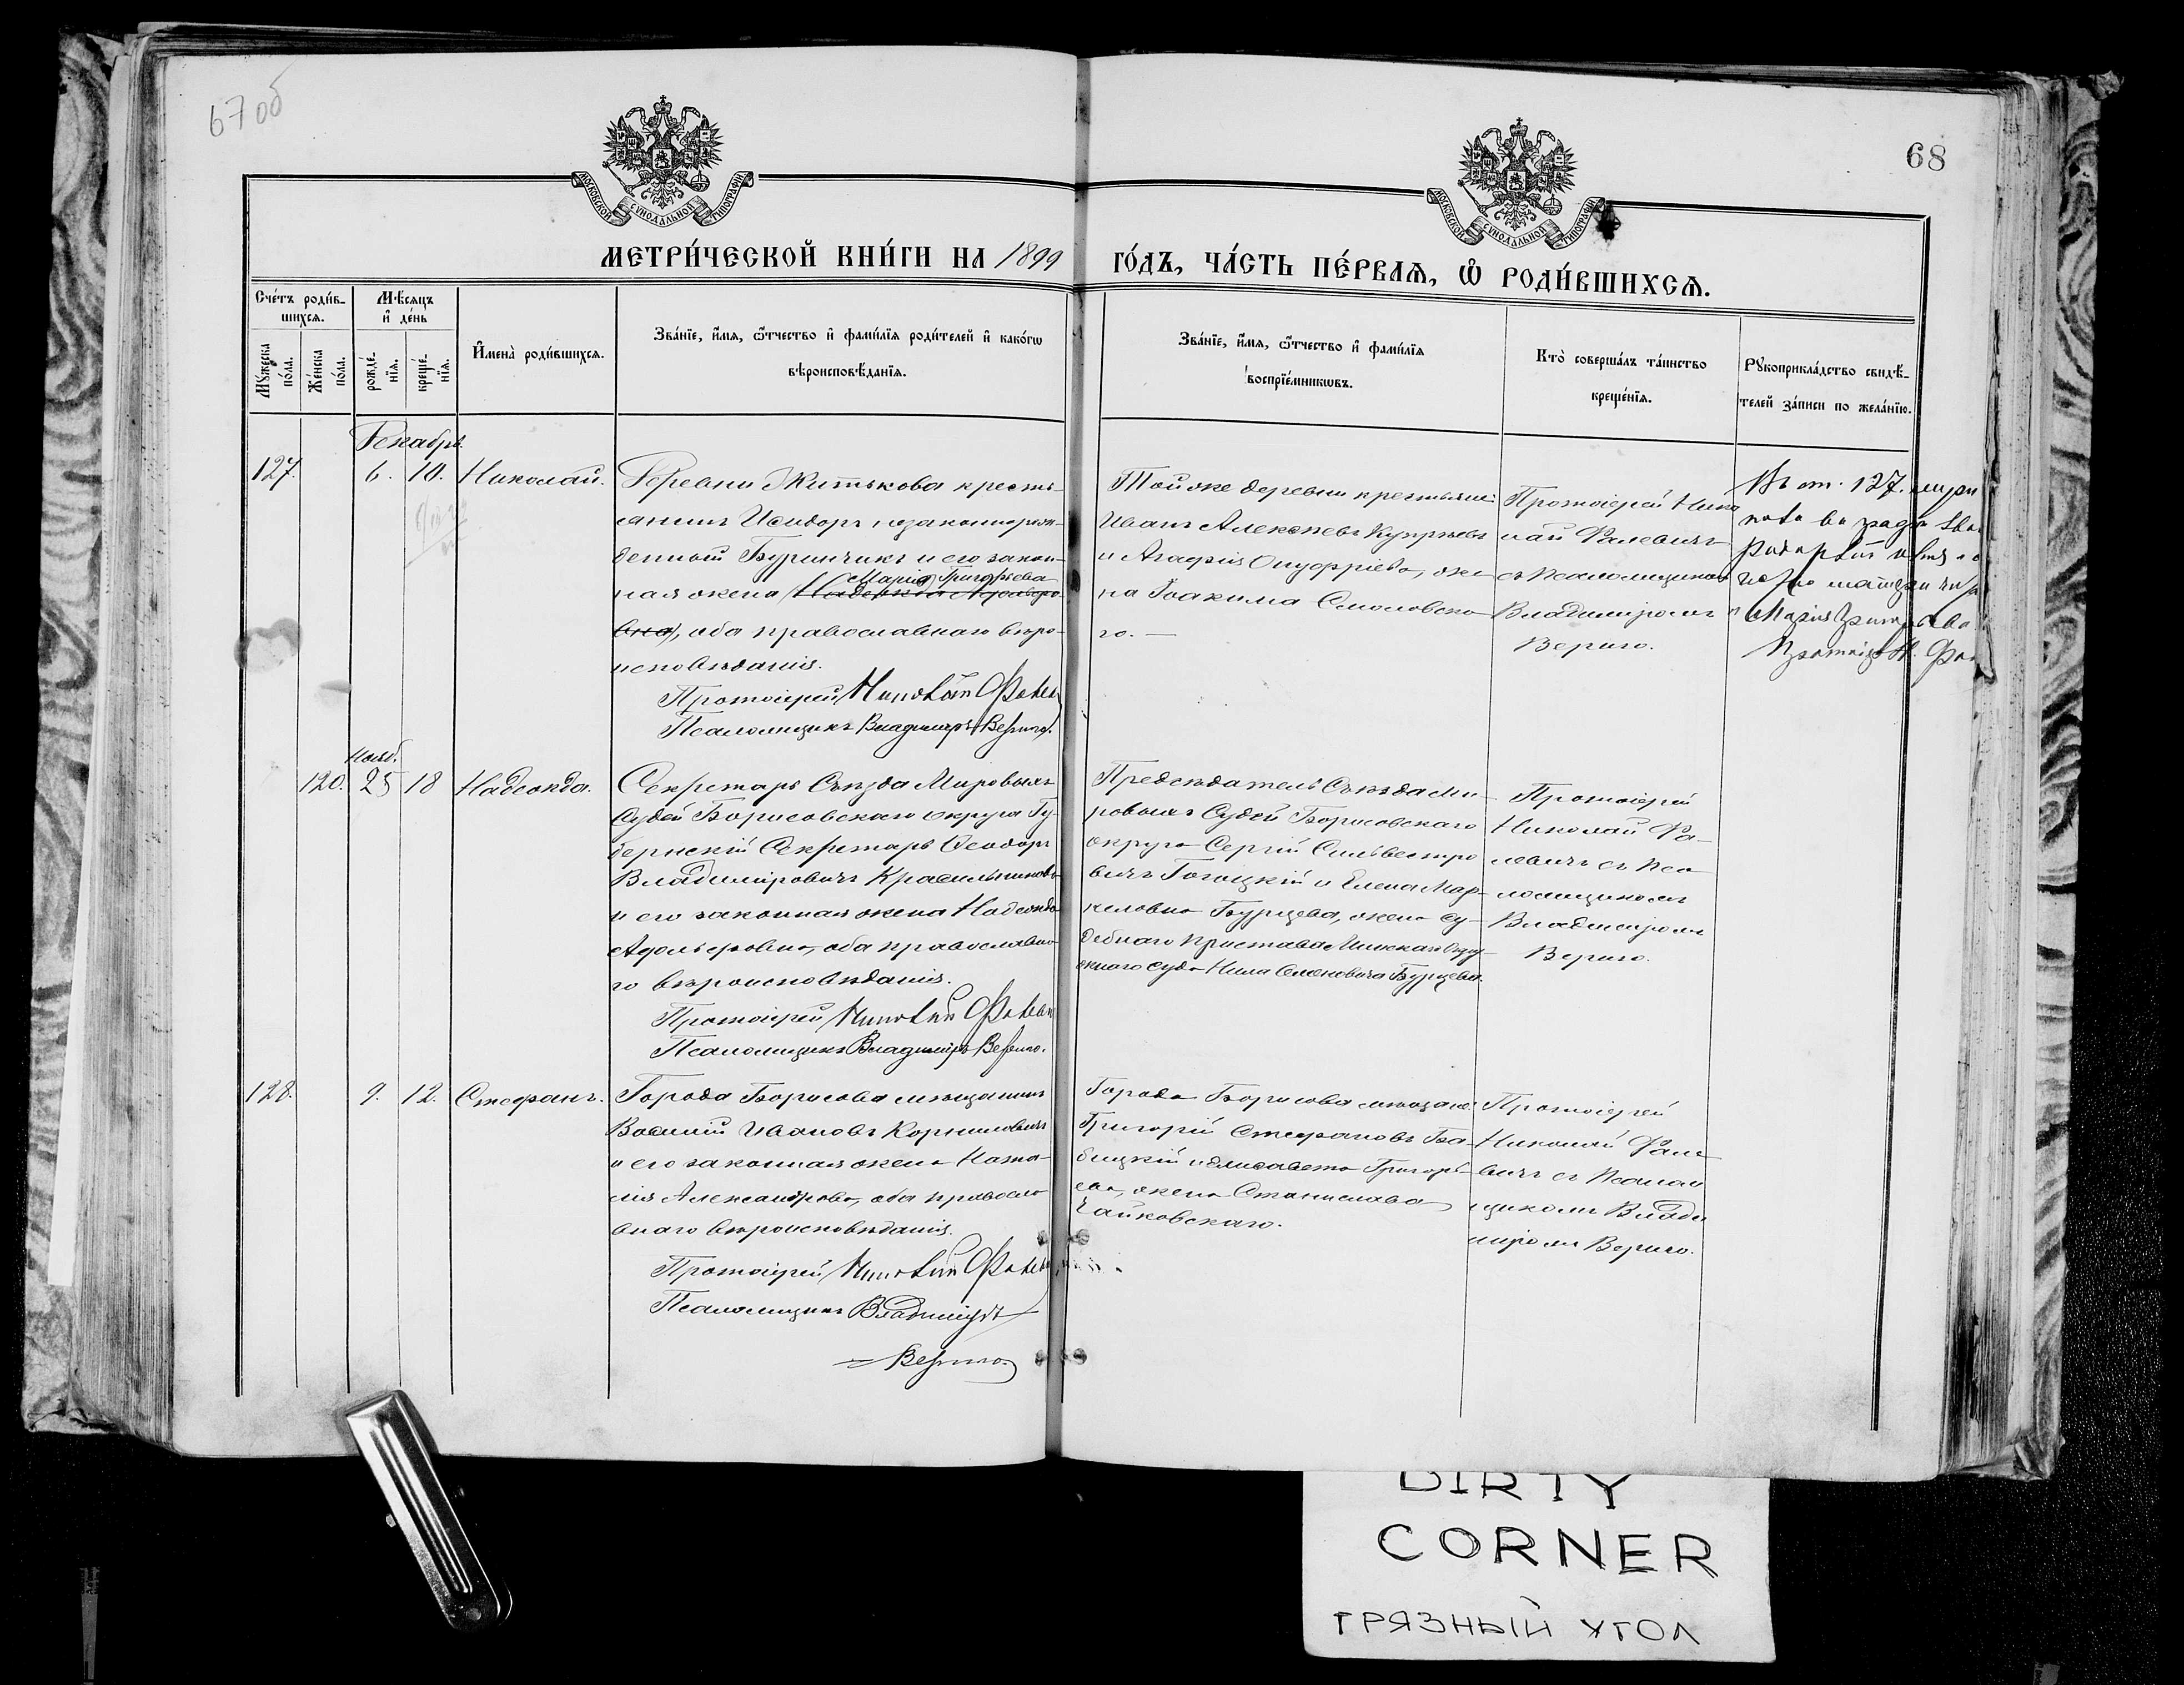 67 об
68
МОСКОВСКОЙ СѴНОДАЛЬНОЙ ТИПОГРАФІИ
МОСКОВСКОЙ СѴНОДАЛЬНОЙ ТИПОГРАФІИ
МЕТРИ́ЧЕСКОЙ КНИ́ГИ НА 1899
ГО́ДЪ, ЧА́СТЬ ПЕ́РВАѦ, Ѡ РОДИ́ВШИХСѦ.
Сче́тъ роди́в-
шихсѧ.
Мꙋ́жеска по́ла.
Же́нска по́ла.
Мѣ́сѧцъ
и҆ де́нь
рожде́нїѧ.
креще́нїѧ.
И҆мена̀ роди́вшихсѧ.
Зва́нїе, и҆́мѧ, ѻ҆́тчество и҆ фами́лїѧ роди́телей и҆ како́гѡ
вѣроисповѣ́данїѧ.
Зва́нїе, и҆́мѧ, ѻ҆́тчество и҆ фами́лїѧ
воспрїе́мникѡвъ.
Кто̀ соверша́лъ та́инство
креще́нїѧ.
Рꙋкоприкла́дство свидѣ́-
телей за́писи по жела́нїю.
Декабрь.
127. 6. 10. Николай.
Деревни Житькова кресть-
янинъ Исидоръ незаконнорож-
денный Буринчикъ и его закон-
Марія Григорьева
ная жена
вна), оба православнаго веро-
исповѣданія.
Протоіерей Николай Фалевичъ
Псаломщикъ Владиміръ Вериго.
Той же деревни крестьяне:
Иванъ Алексѣевъ Купрѣевъ
и Агафія Онуфріева, же-
на Іоакима Смоловско-
го. —
Протоіерей Нико
лай Фалевичъ
съ Псаломщикомъ
Владиміромъ
Вериго.
Въ ст. 127.
Марія Григорьева
Протоіер. Н. Фал
Нояб.
120. 25 18 Надежда.
Секретарь Съѣзда Мировыхъ
Судей Борисовскаго округа Гу-
бернскій Секретарь Ѳеодоръ
Владиміровичъ Красильниковъ
и его законная жена Надежда
Адольфовна, оба православна-
го вѣроисповѣданія.
Протоіерей Николай Фалевичъ
Псаломщикъ Владиміръ Вериго.
Предсѣдатель Съѣзда Ми-
ровыхъ Судей Борисовскаго
округа Сергій Сильвестро
вичъ Гогоцкій и Елена Мар-
келовна Бурцева, жена су-
дебнаго пристава Минскаго Окру-
жного суда Нила Бурцева.
Протоіерей
Николай Фа-
левичъ съ Пса-
ломщикомъ
Владиміромъ
Вериго.
128. 9. 12. Стефанъ.
Города Борисова мѣщанинъ
Василій Ивановъ Корниловичъ
и его законная жена Ната-
лія Александрова, оба правосла
внаго вѣроисповѣданія.
Протоіерей Николай Фалевичъ
Псаломщикъ Владиміръ
Вериго.
Города Борисова мѣщане:
Григорій Стефановъ Ба-
бицкій и Елисавета Григорь-
ева, жена Станислава
Чайковскаго.
Протоіерей
Николай Фале-
вичъ съ Псалом
щикомъ Влади
міромъ Вериго.
DIRTY
CORNER
ГРЯЗНЫЙ УГОЛ